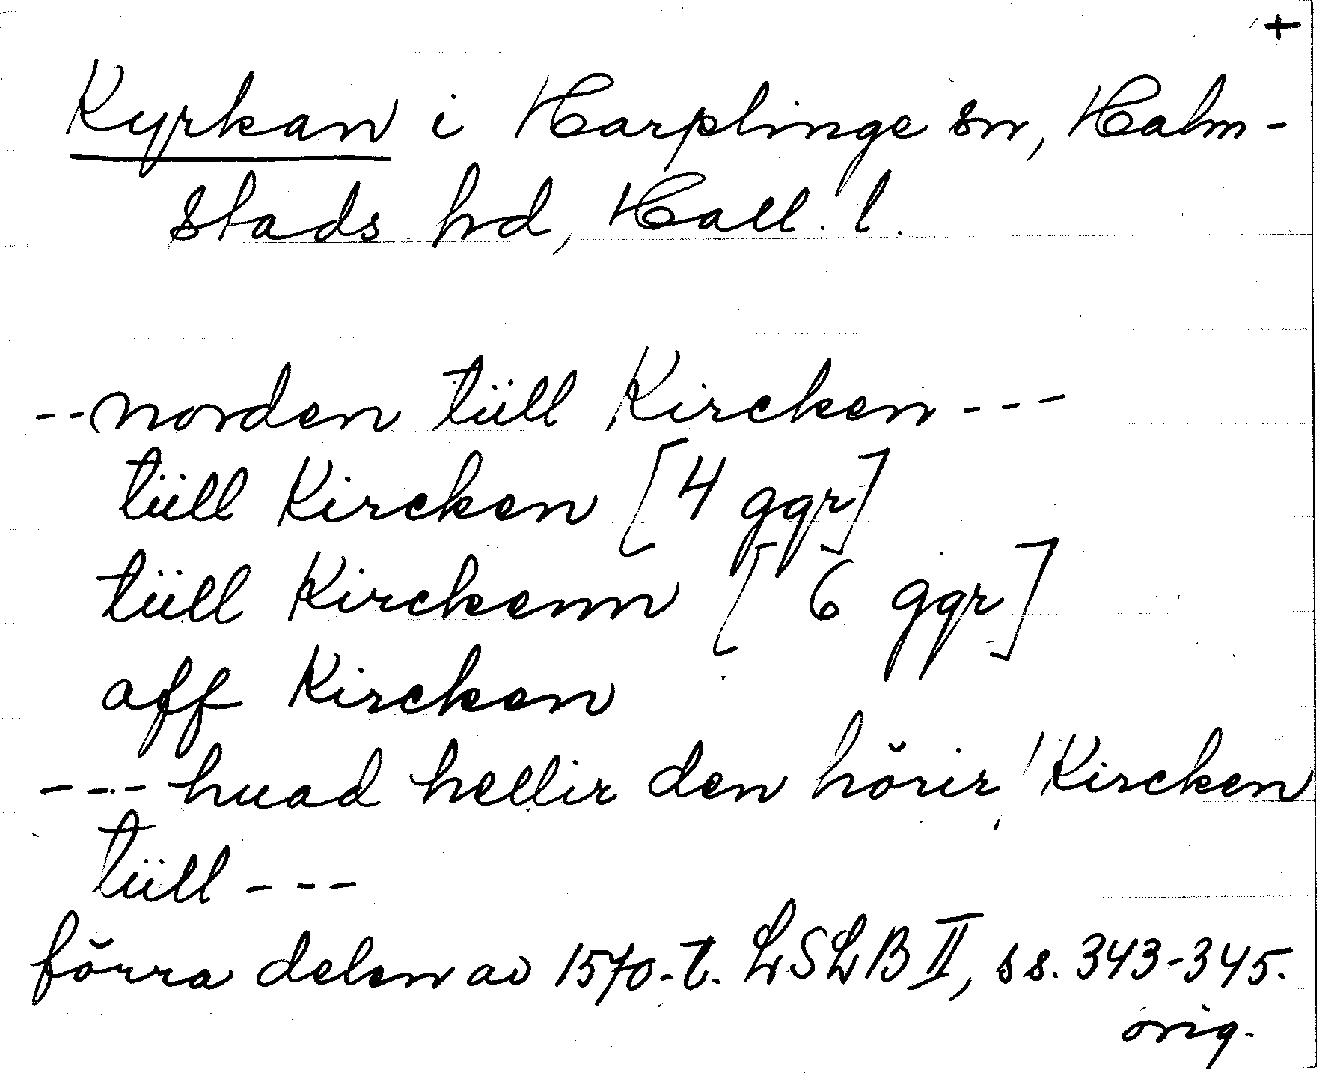 +
Kyrkan i Harplinge sn, Halm-
stads hd, Hall. l.
--norden tüll Kircken---
tüll Kircken [4 ggr]
tüll Kirckenn [6 ggr]
aff Kircken
---huad hellir den hörir Kircken
tüll---
förra delen av 1570-t. LSLB II, ss. 343-345.
orig.